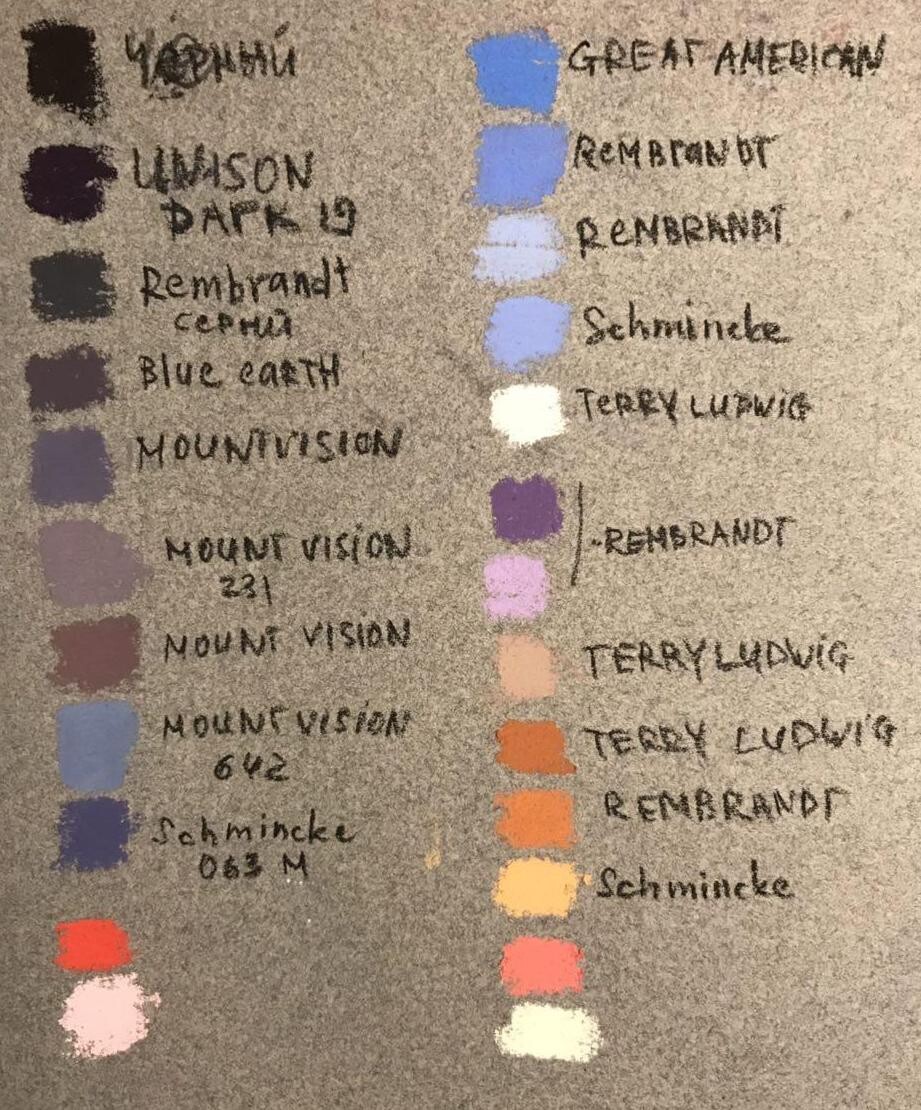 ЧЁРНЫЙ
UNISON
DARK 19
Rembrandt
серый
Blue eaRTH
MOUNTVISION
MOUNT VISION
231
MOUNT VISION
MOUNT VISION
642
Schmincke
063 M
GREAT AMERICAN
ReMBraNDT
ReMBRANDT
Schmincke
TeRRY LUDWiG
REMBRANDT
TERRY LUDWiG
TERRY LUDWiG
REMBRANDT
Schmincke